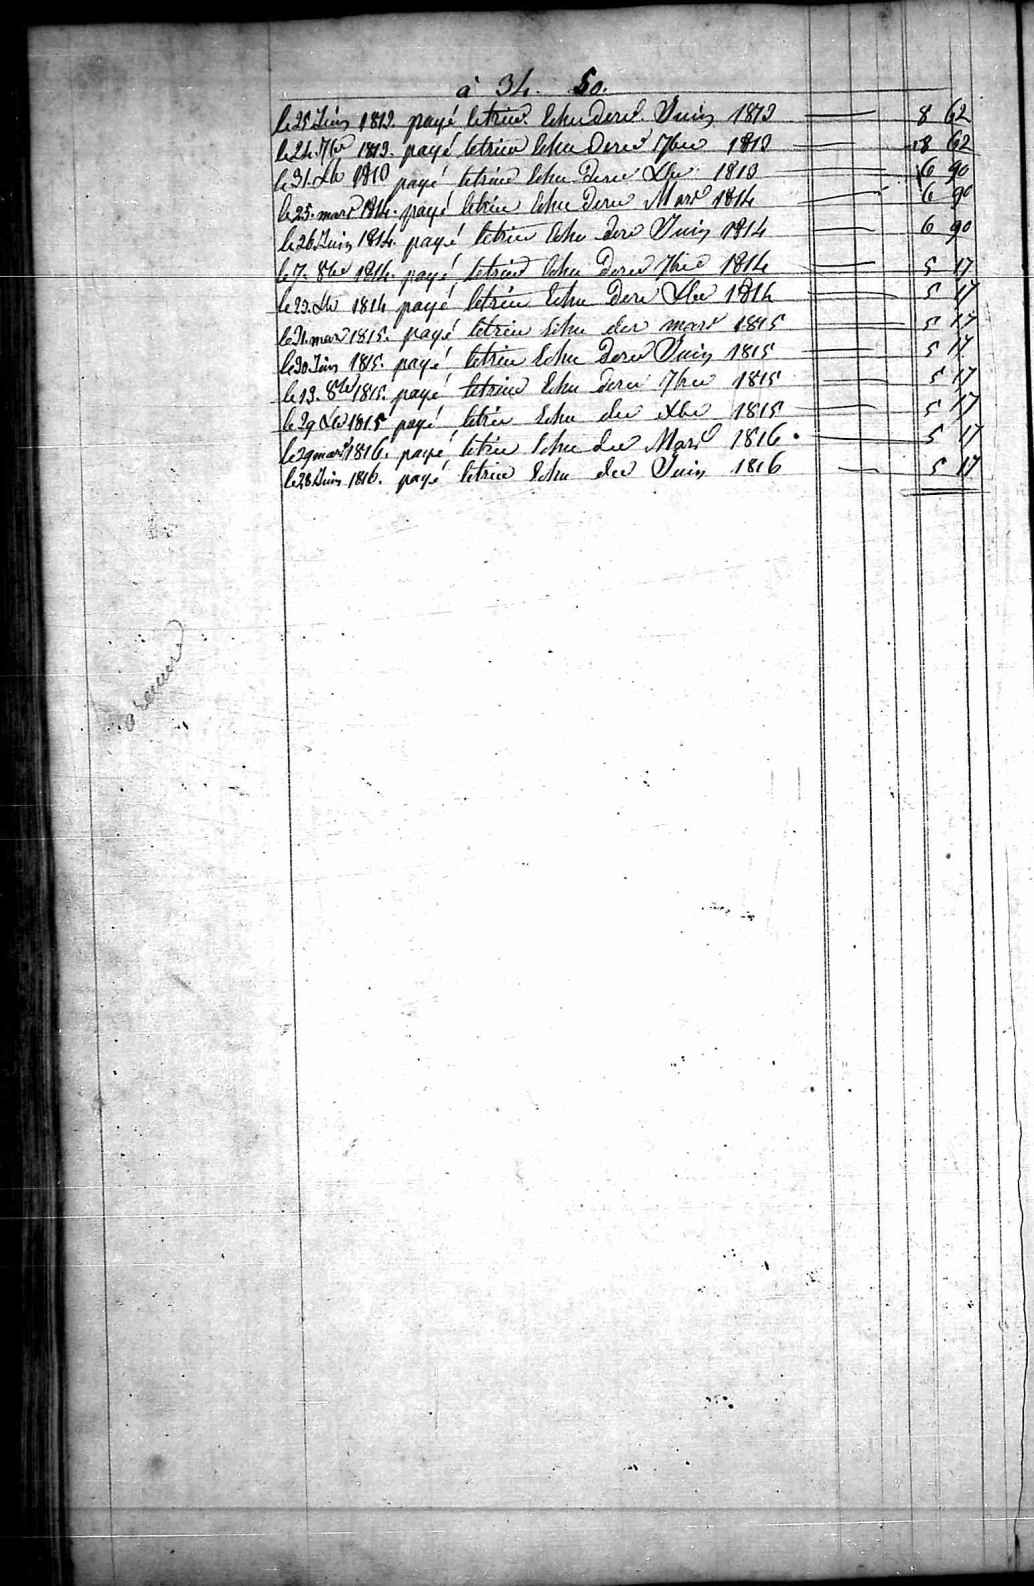 à 34. 50.
le 25 Juin 1813. payé le trim. Echu dernr. Juin 1813 8 62
le 24. 7bre 1813. payé le trim Echu dernr 7bre 1813 8 62
le 31. Xbr 1813 payé le trim Echu dernr Xbr 1813 6 90
le 25. mars 1814. payé le trim Echu dernr Mars 1814 6 90
le 26 Juin 1814. payé le trim Echu dernr Juin 1814 6 90
le 7. 8bre 1814. payé le trim Echu dernr 7bre 1814 5 17
le 23. Xbr 1814 payé le trim Echu dernr Xbr 1814 5 17
le 31. mars 1815. payé le trim Echu der mars 1815 5 17
le 30 Juin 1815. payé le trim Echu dernr Juin 1815 5 17
le 13. 8bre 1815. payé le trim Echu dernr 7bre 1815 5 17
le 29 Xbr 1815 payé le trim Echu der Xbr 1815 5 17
le 29 mars 1816. payé le trim Echu der Mars 1816. 5 17
le 28 Juin 1816. payé le trim Echu der Juin 1816 5 17